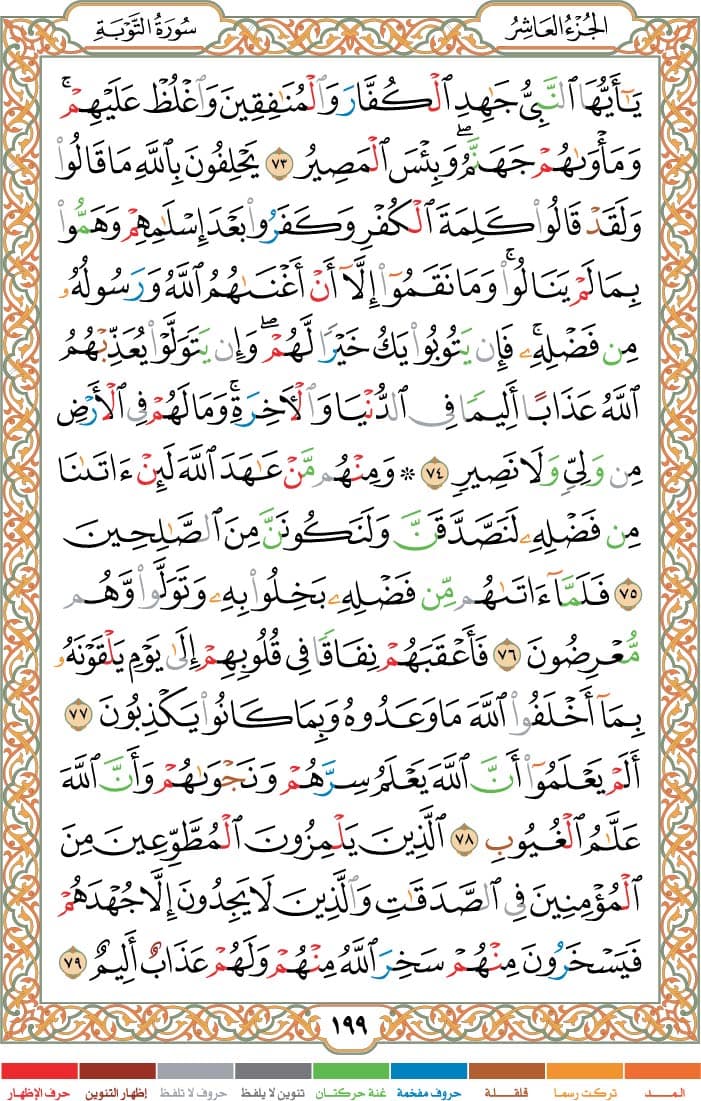 الجُزْءُ العَاشِرُ
سُورَةُ التَّوْبَةِ
يَٰٓأَيُّهَا ٱلنَّبِىُّ جَٰهِدِ ٱلْكُفَّارَ وَٱلْمُنَٰفِقِينَ وَٱغْلُظْ عَلَيْهِمْ ۚ
وَمَأْوَىٰهُمْ جَهَنَّمُ ۖ وَبِئْسَ ٱلْمَصِيرُ ٧٣ يَحْلِفُونَ بِٱللَّهِ مَا قَالُوا۟
وَلَقَدْ قَالُوا۟ كَلِمَةَ ٱلْكُفْرِ وَكَفَرُوا۟ بَعْدَ إِسْلَٰمِهِمْ وَهَمُّوا۟
بِمَا لَمْ يَنَالُوا۟ ۚ وَمَا نَقَمُوٓا۟ إِلَّآ أَنْ أَغْنَىٰهُمُ ٱللَّهُ وَرَسُولُهُۥ
مِن فَضْلِهِۦ ۚ فَإِن يَتُوبُوا۟ يَكُ خَيْرًا لَّهُمْ ۖ وَإِن يَتَوَلَّوْا۟ يُعَذِّبْهُمُ
ٱللَّهُ عَذَابًا أَلِيمًا فِى ٱلدُّنْيَا وَٱلْءَاخِرَةِ ۚ وَمَا لَهُمْ فِى ٱلْأَرْضِ
مِن وَلِىٍّ وَلَا نَصِيرٍ ٧٤ ۞ وَمِنْهُم مَّنْ عَٰهَدَ ٱللَّهَ لَئِنْ ءَاتَىٰنَا
مِن فَضْلِهِۦ لَنَصَّدَّقَنَّ وَلَنَكُونَنَّ مِنَ ٱلصَّٰلِحِينَ
٧٥ فَلَمَّآ ءَاتَىٰهُم مِّن فَضْلِهِۦ بَخِلُوا۟ بِهِۦ وَتَوَلَّوا۟ وَّهُم
مُّعْرِضُونَ ٧٦ فَأَعْقَبَهُمْ نِفَاقًا فِى قُلُوبِهِمْ إِلَىٰ يَوْمِ يَلْقَوْنَهُۥ
بِمَآ أَخْلَفُوا۟ ٱللَّهَ مَا وَعَدُوهُ وَبِمَا كَانُوا۟ يَكْذِبُونَ ٧٧
أَلَمْ يَعْلَمُوٓا۟ أَنَّ ٱللَّهَ يَعْلَمُ سِرَّهُمْ وَنَجْوَىٰهُمْ وَأَنَّ ٱللَّهَ
عَلَّٰمُ ٱلْغُيُوبِ ٧٨ ٱلَّذِينَ يَلْمِزُونَ ٱلْمُطَّوِّعِينَ مِنَ
ٱلْمُؤْمِنِينَ فِى ٱلصَّدَقَٰتِ وَٱلَّذِينَ لَا يَجِدُونَ إِلَّا جُهْدَهُمْ
فَيَسْخَرُونَ مِنْهُمْ سَخِرَ ٱللَّهُ مِنْهُمْ وَلَهُمْ عَذَابٌ أَلِيمٌ ٧٩
١٩٩
المـــد تركت رسما قلقلة حروف مفخمة غنة حركتان تنوين لا يلفظ حروف لا تلفظ إظهار التنوين حرف الإظهار